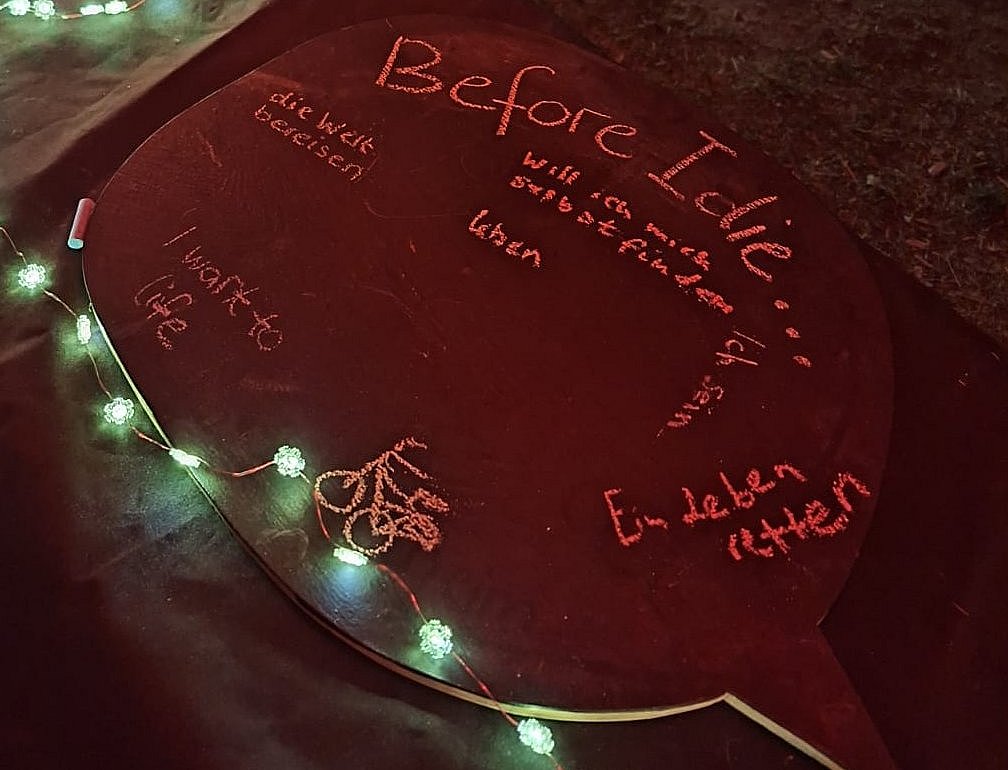 Before I die...
die Welt
bereisen
will ich mich
selbst finden
leben
I want to
life
Ich
sein
Ein Leben
retten